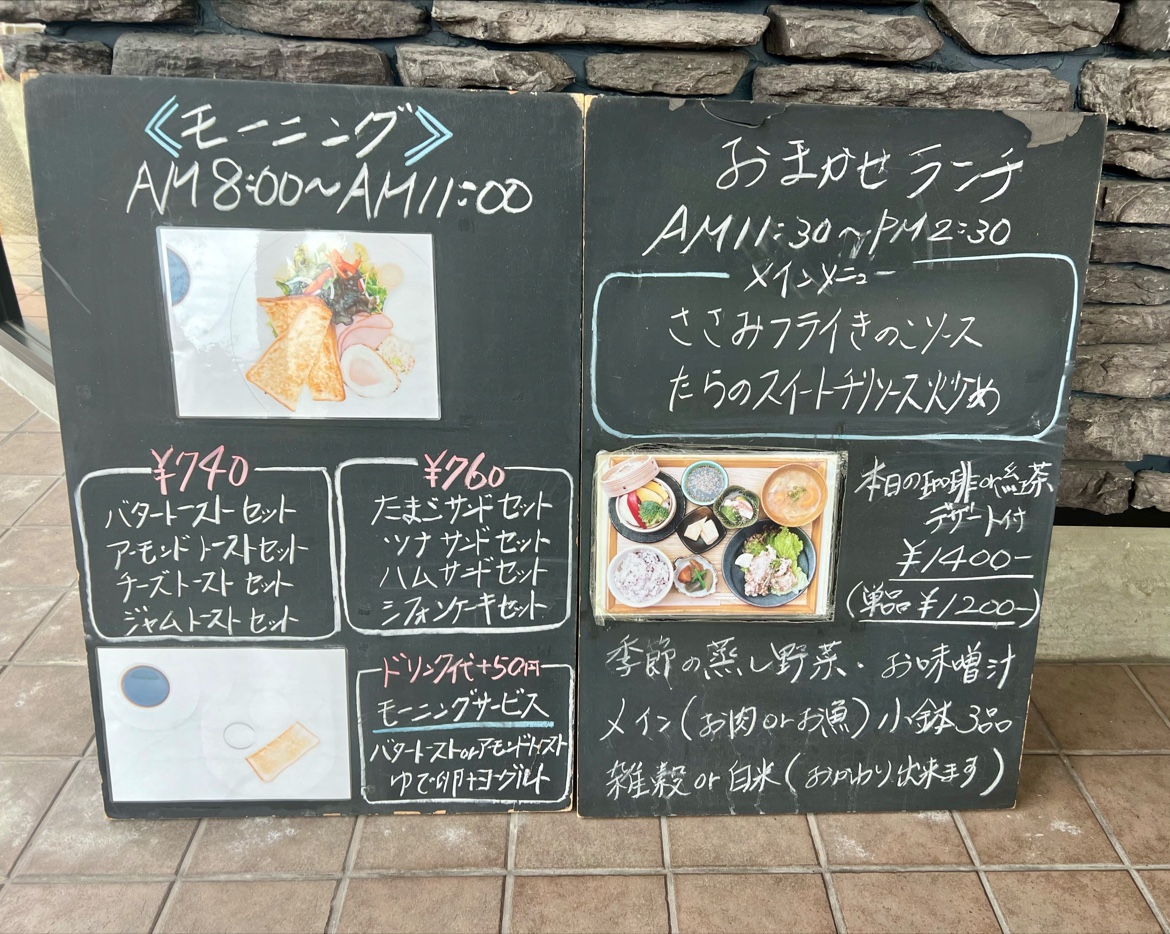 《モーニング》
AM8:00〜AM11:00
¥740
バタートーストセット
アーモンドトーストセット
チーズトーストセット
ジャムトーストセット
¥760
たまごサンドセット
ツナサンドセット
ハムサンドセット
シフォンケーキセット
ドリンク代+50円
モーニングサービス
バタートーストorアーモンドトースト
ゆで卵+ヨーグルト
おまかせランチ
AM11:30〜PM2:30
メインメニュー
ささみフライきのこソース
たらのスイートチリソース炒め
本日の珈琲or紅茶
デザート付
¥1400-
(単品¥1200-)
季節の蒸し野菜・お味噌汁
メイン(お肉orお魚)小鉢3品
雑穀or白米(おかわり出来ます)